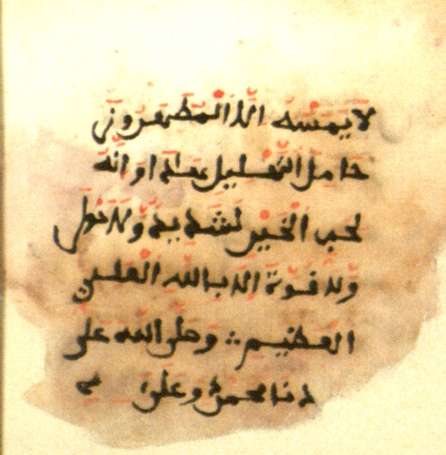 لا يمسه الا المطهرون
حامل وانه
لحب الخير لشديد ولا حول
ولا قوة الا بالله العلي
العظيم ∴ وصلى الله على
دنا محمد وعلى